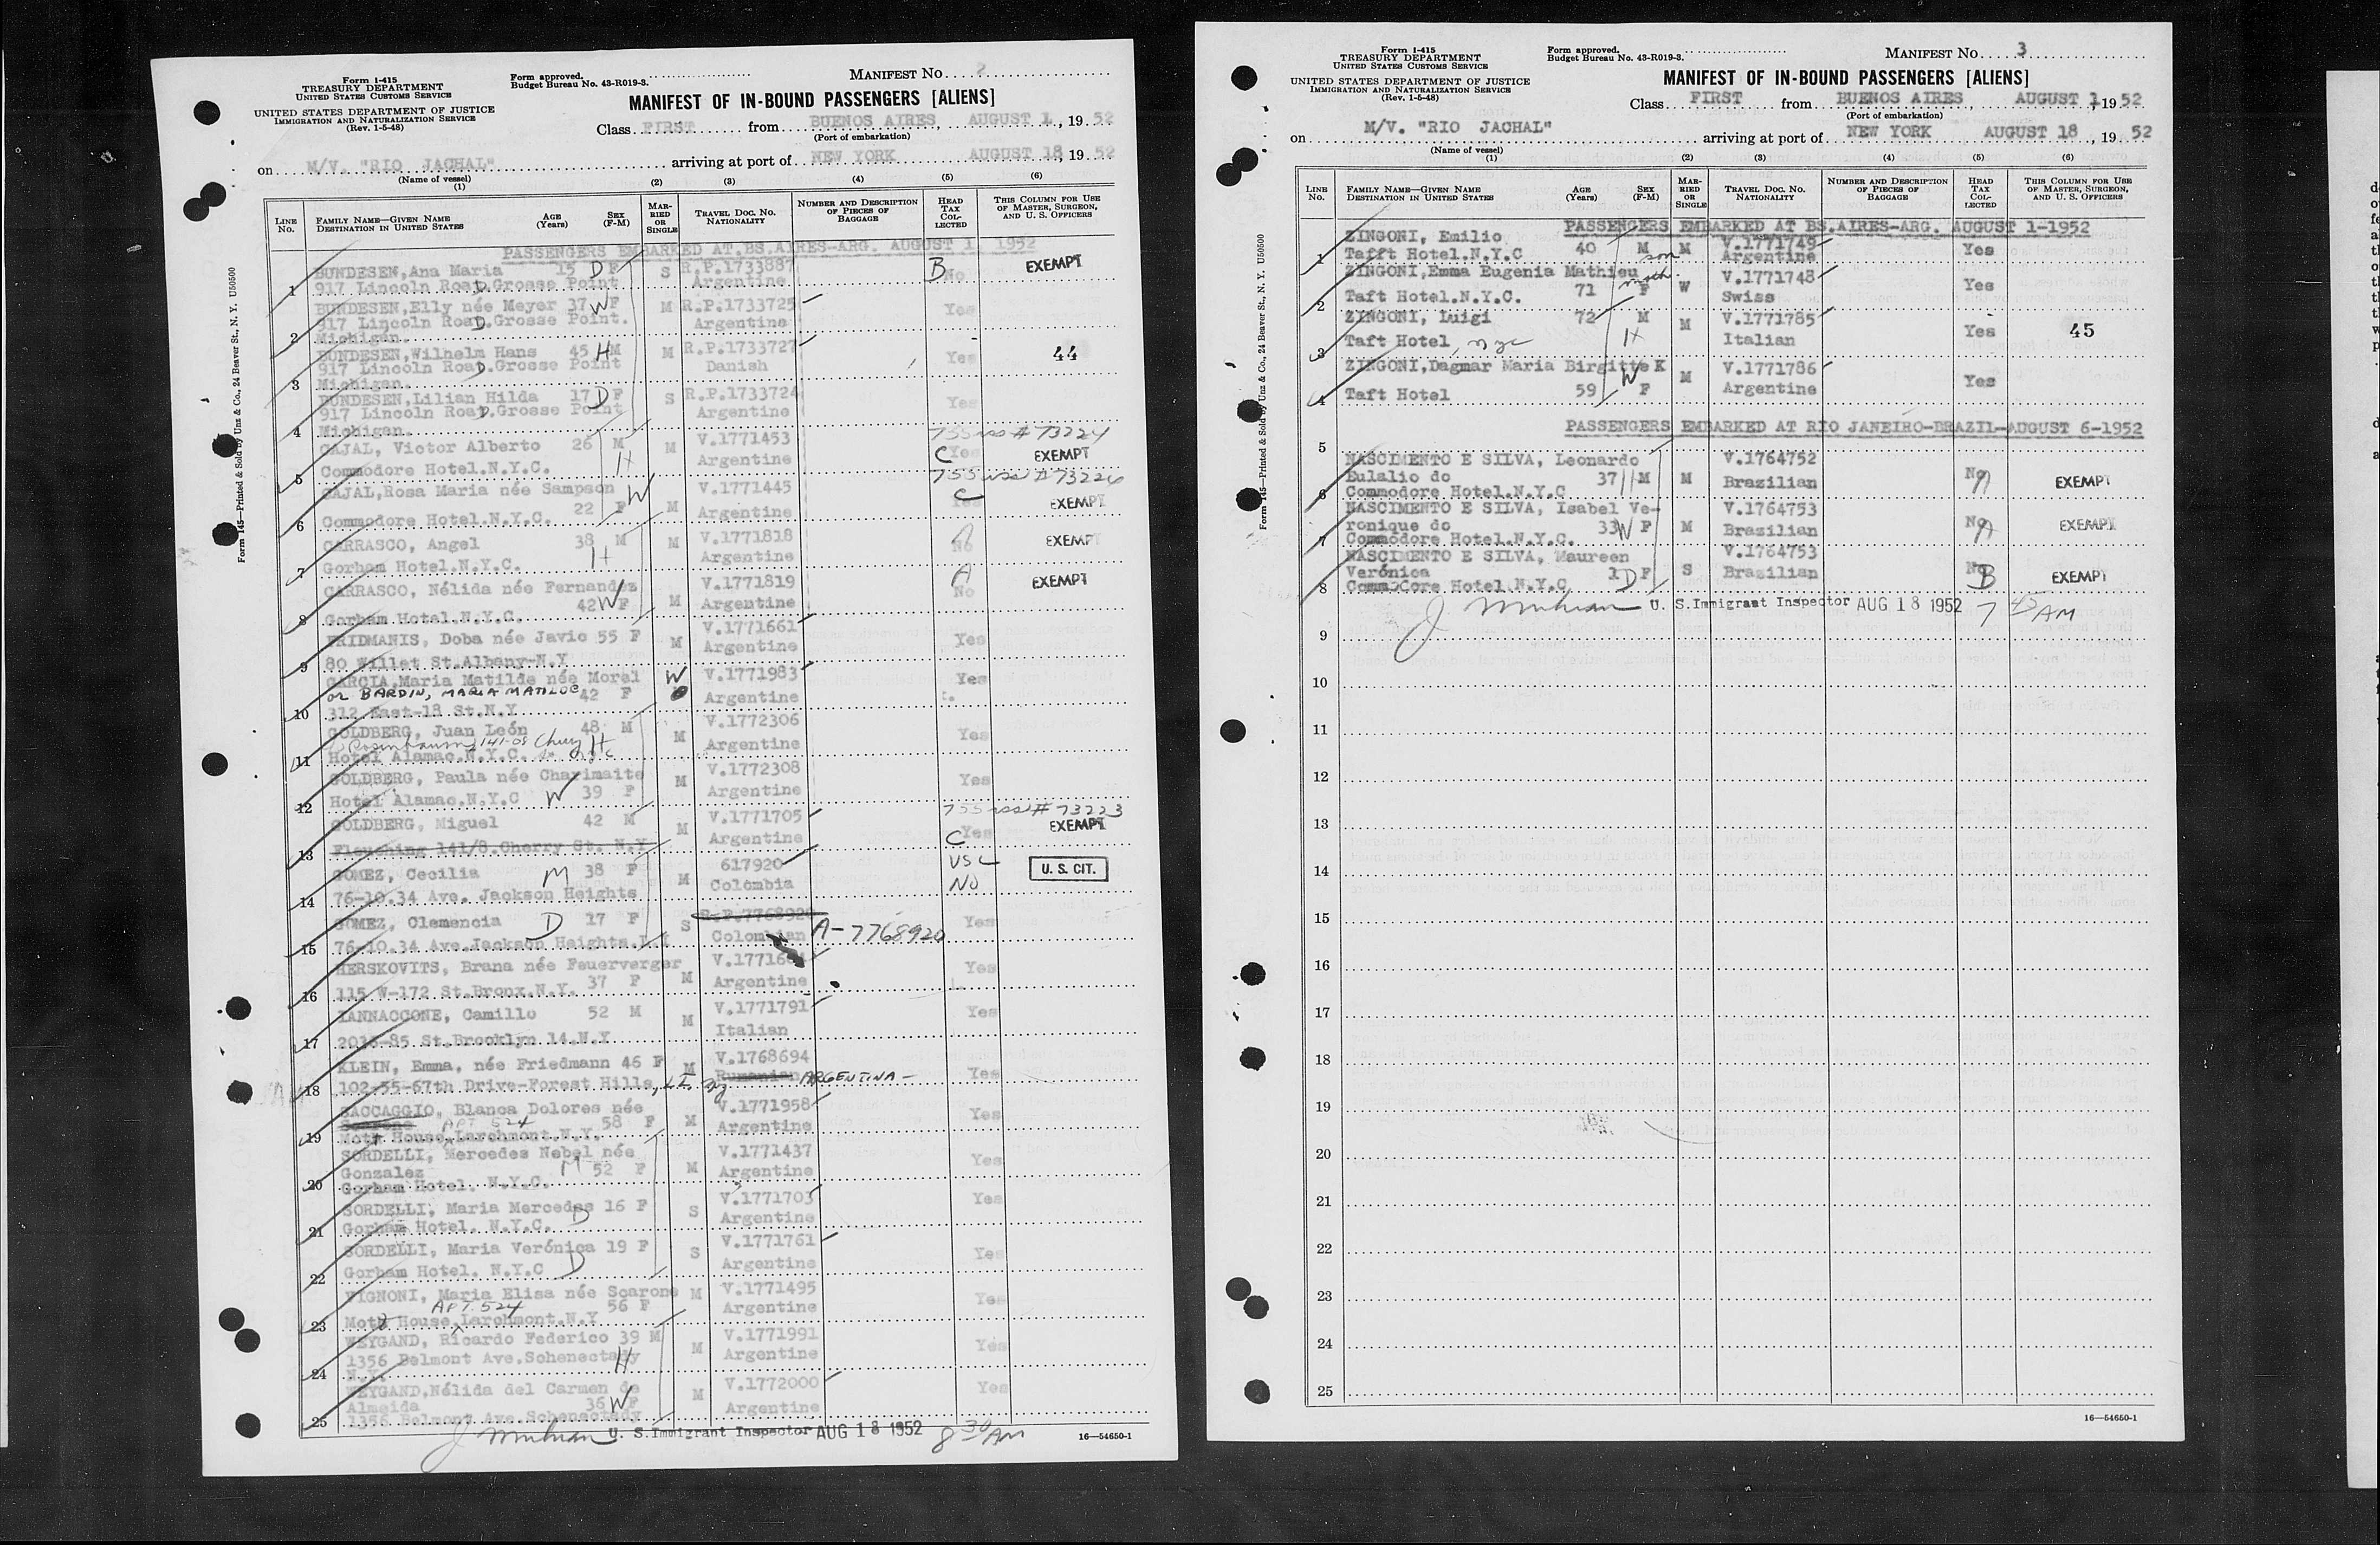 Form I-415
TREASURY DEPARTMENT
UNITED STATES CUSTOMS SERVICE
UNITED STATES DEPARTMENT OF JUSTICE
IMMIGRATION AND NATURALIZATION SERVICE
(Rev. 1-5-48)
Form approved.
Budget Bureau No. 43-R019-3.
MANIFEST No. 2
MANIFEST OF IN-BOUND PASSENGERS [ALIENS]
Class FIRST from BUENOS AIRES, AUGUST 1, 19 52
(Port of embarkation)
on M/V. "RIO JACHAL" arriving at port of NEW YORK AUGUST 18 19 52
(Name of vessel)
(1) (2) (3) (4) (5) (6)
LINE No.
FAMILY NAME—GIVEN NAME
DESTINATION IN UNITED STATES
AGE (Years)
SEX (F-M)
MARRIED OR SINGLE
TRAVEL DOC. NO. NATIONALITY
NUMBER AND DESCRIPTION OF PIECES OF BAGGAGE
HEAD TAX COLLECTED
THIS COLUMN FOR USE OF MASTER, SURGEON, AND U. S. OFFICERS
PASSENGERS EMBARKED AT BS.AIRES-ARG. AUGUST 1 1952
BUNDESEN,Ana Maria 15 D F S R.P.1733887 B No EXEMPT
1 917 Lincoln Road.Grosse Point Argentine
BUNDESEN,Elly née Meyer 37 W F M R.P.1733725 Yes
917 Lincoln Road.Grosse Point. Argentine
2 Michigan.
BUNDESEN,Wilhelm Hans 45 H M M R.P.1733727 Yes 44
917 Lincoln Road.Grosse Point Danish
3 Michigan.
BUNDESEN,Lilian Hilda 17 D F S R.P.1733724 Yes
917 Lincoln Road.Grosse Point Argentine
4 Michigan.
CAJAL, Victor Alberto 26 M M V.1771453 755 # 73224
5 Commodore Hotel.N.Y.C. H Argentine C Yes EXEMPT
CAJAL,Rosa Maria née Sampson W V.1771445 755 # 73226
6 Commodore Hotel.N.Y.C. 22 F M Argentine C Yes EXEMPT
CARRASCO, Angel 38 M M V.1771818 A No EXEMPT
7 Gorham Hotel.N.Y.C. H Argentine
CARRASCO, Nélida née Fernandez V.1771819 A No EXEMPT
42 W F M Argentine
8 Gorham Hotel.N.Y.C.
FRIDMANIS, Doba née Javic 55 F M V.1771661 Yes
9 80 Willet St.Albany-N.Y Argentine
GARCIA,Maria Matilde née Morel W V.1771983 Yes
or BARDIN, MARIA MATILDE 42 F Argentine
10 312 East-18 St.N.Y
GOLDBERG, Juan León 48 M M V.1772306 Yes
Rosenbaum 141-08 Cherry H Argentine
11 Hotel Alamac.N.Y.C.
GOLDBERG, Paula née Charimaite M V.1772308 Yes
12 Hotel Alamac.N.Y.C W 39 F Argentine
GOLDBERG, Miguel 42 M M V.1771705 755 # 73223
Argentine C Yes EXEMPT
13 Flouching 141/8.Cherry St. N.Y
GOMEZ, Cecilia M 38 F M 617920 USC U. S. CIT.
14 76-10.34 Ave. Jackson Heights Colombia No
GOMEZ, Clemencia D 17 F S R.P.7768920 Yes
15 76-10.34 Ave.Jackson Heights. Colombian A-7768920
HERSKOVITS, Brana née Feuerverger V.1771664 Yes
16 115 W-172 St.Bronx.N.Y. 37 F M Argentine
IANNACCONE, Camillo 52 M M V.1771791 Yes
17 2018-85 St.Brooklyn 14.N.Y Italian
KLEIN, Emma, née Friedmann 46 F M V.1768694 Yes
18 102-55-67th Drive-Forest Hills, L.I. ny Rumanian ARGENTINA
SACCAGGIO, Blanca Dolores née V.1771958 Yes
APT 524 58 F M Argentine
19 Mott House,Larchmont.N.Y.
SORDELLI, Mercedes Nebel née V.1771437 Yes
Gonzalez M 52 F M Argentine
20 Gorham Hotel. N.Y.C.
SORDELLI, Maria Mercedes 16 F S V.1771703 Yes
21 Gorham Hotel. N.Y.C. D Argentine
SORDELLI, Maria Verónica 19 F S V.1771761 Yes
22 Gorham Hotel. N.Y.C D Argentine
VIGNONI, Maria Elisa née Scarone M V.1771495 Yes
APT. 524 56 F Argentine
23 Mott House,Larchmont.N.Y
WEYGAND, Ricardo Federico 39 M M V.1771991 Yes
1356 Belmont Ave.Schenectady H Argentine
24 N.Y.
WEYGAND,Nélida del Carmen de M V.1772000 Yes
Almeida 36 W F Argentine
25 1356 Belmont Ave.Schenectady
U. S. Immigrant Inspector AUG 18 1952 8 30 AM
16—54650-1
Form 145—Printed & Sold by Unz & Co., 24 Beaver St., N. Y. U50500
Form I-415
TREASURY DEPARTMENT
UNITED STATES CUSTOMS SERVICE
UNITED STATES DEPARTMENT OF JUSTICE
IMMIGRATION AND NATURALIZATION SERVICE
(Rev. 1-5-48)
Form approved.
Budget Bureau No. 43-R019-3.
MANIFEST No. 3
MANIFEST OF IN-BOUND PASSENGERS [ALIENS]
Class FIRST from BUENOS AIRES, AUGUST 1, 19 52
(Port of embarkation)
on M/V. "RIO JACHAL" arriving at port of NEW YORK AUGUST 18, 19 52
(Name of vessel)
(1) (2) (3) (4) (5) (6)
LINE No.
FAMILY NAME—GIVEN NAME
DESTINATION IN UNITED STATES
AGE (Years)
SEX (F-M)
MARRIED OR SINGLE
TRAVEL DOC. NO. NATIONALITY
NUMBER AND DESCRIPTION OF PIECES OF BAGGAGE
HEAD TAX COLLECTED
THIS COLUMN FOR USE OF MASTER, SURGEON, AND U. S. OFFICERS
PASSENGERS EMBARKED AT BS.AIRES-ARG. AUGUST 1-1952
ZINGONI, Emilio 40 M M V.1771749 Yes
1 Tafft Hotel.N.Y.C son Argentine
ZINGONI,Emma Eugenia Mathieu moth. V.1771748 Yes
2 Taft Hotel.N.Y.C. 71 F W Swiss
ZINGONI, Luigi 72 M M V.1771785 Yes 45
3 Taft Hotel, nyc H Italian
ZINGONI,Dagmar Maria Birgitte K V.1771786 Yes
4 Taft Hotel 59 W F M Argentine
PASSENGERS EMBARKED AT RIO JANEIRO-BRAZIL-AUGUST 6-1952
5
NASCIMENTO E SILVA, Leonardo V.1764752
Eulalio do 37 H M M Brazilian No A EXEMPT
6 Commodore Hotel.N.Y.C
NASCIMENTO E SILVA, Isabel Ve- V.1764753
ronique do 33 W F M Brazilian No A EXEMPT
7 Commodore Hotel.N.Y.C.
NASCIMENTO E SILVA, Maureen V.1764753
Verónica 1 D F S Brazilian No B EXEMPT
8 Commodore Hotel N.Y.C
U. S. Immigrant Inspector AUG 18 1952 7 45 AM
9
10
11
12
13
14
15
16
17
18
19
20
21
22
23
24
25
16—54650-1
Form 145—Printed & Sold by Unz & Co., 24 Beaver St., N. Y. U50500